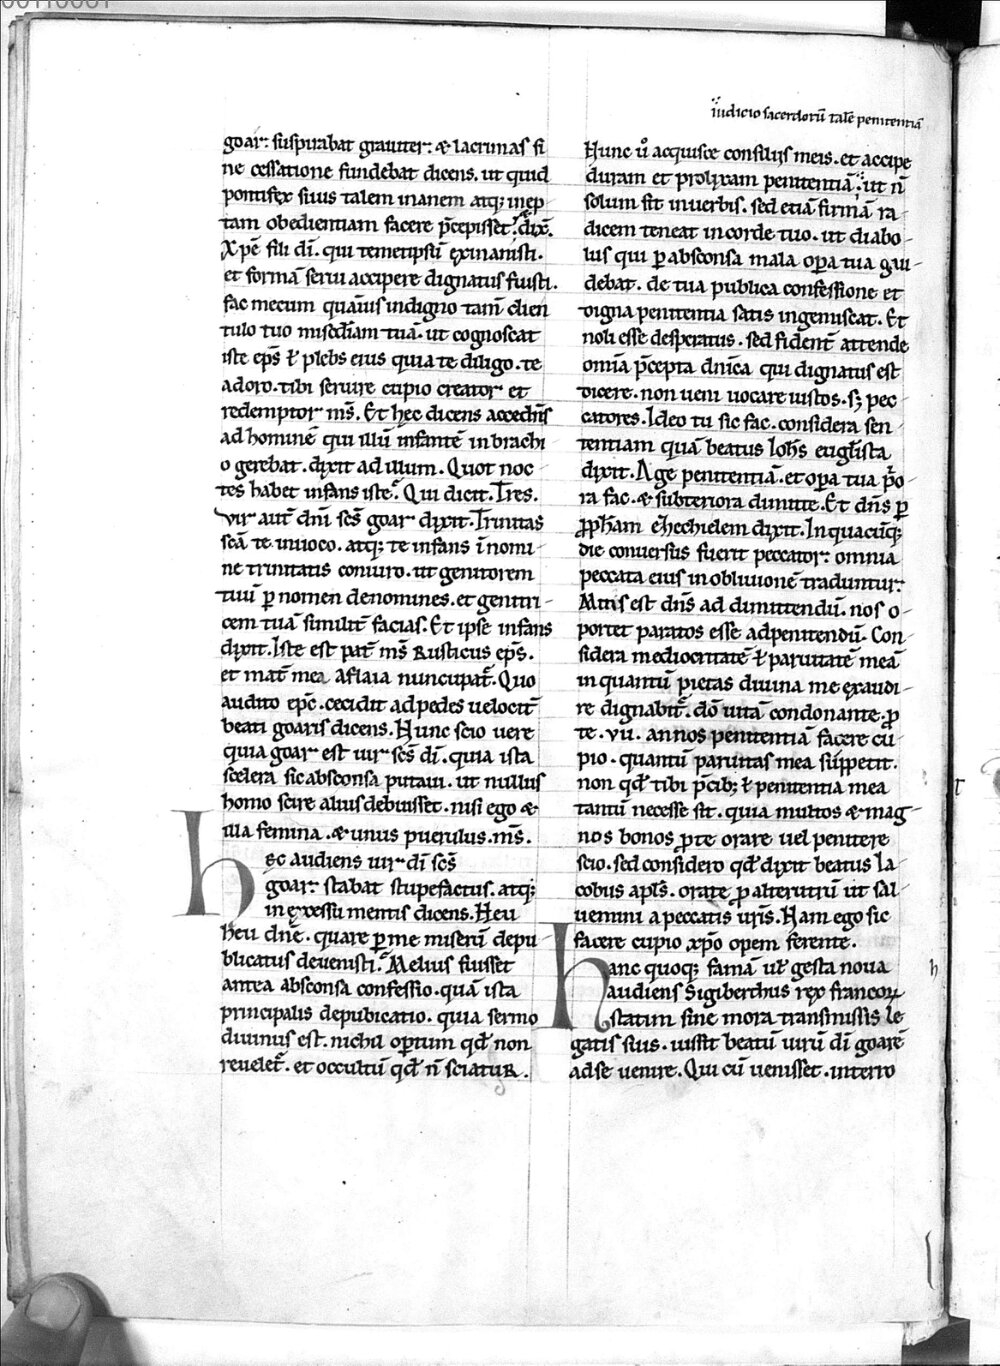 iudicio sacerdotū talē penitentiā
goar: suspirabat grauiter: & lacrimas si
ne cessatione fundebat dicens. ut quid
pontifex suus talem inanem atq; inep
tam obedientiam facere p̄cepisset. & dix̄.
Xp̄e fili dī. qui temetipsū exinanisti.
et formā serui accipere dignatus fuisti.
fac mecum quāuis indigno tam̄ clien
tulo tuo mīscd̄iam tuā. ut cognoscat
iste ep̄s ł plebs eius quia te diligo. te
adoro. tibi seruire cupio creator et
redemptor m̄s. Et hęc dicens accedn̄s
ad hominē qui illū infantē in brachi
o gerebat. dixit ad illum. Quot noc
tes habet infans iste. Qui dicit. Tres.
Vir aut̄ dn̄i sc̄s goar dixit. Trinitas
sc̄a te inuoco. atq; te infans ī nomi
ne trinitatis coniuro. ut genitorem
tuū p̱ nomen denomines. et genitri
cem tuā similit̄ facias. Et ipse infans
dixit. Iste est pat̄ m̄s Rusticus ep̄s.
et mat̄ mea aflaia nuncupat᷑. Quo
audito ep̄c. cecidit ad pedes uelocit̄
beati goaris dicens. Hunc scio uere
quia goar est uir sc̄s dī. quia ista
scelera sic absconsa putaui. ut nullus
homo scire alius debuisset. nisi ego &
illa femina. & unus puerulus m̄s.
Hęc audiens uir dī sc̄s
goar. stabat stupefactus. atq;
in excessu mentis dicens. Heu
heu dn̄e. quare p̱ me miserū depu
blicatus deuenisti. Melius fuisset
antea absconsa confessio. quā ista
principalis depubicatio. quia sermo
diuinus est. nichil op̱tum qd̄ non
reuelet᷑. et occultū qd̄ n̄ sciatur.
Hunc ů acquisce consilijs meis. et accipe
duram et prolixam penitentiā. ut n̄
solum sit in uerbis. sed etiā firmā ra
dicem teneat in corde tuo. ut diabo
lus qui p̱ absconsa mala op̱a tua gau
debat. de tua publica confessione et
digna penitentia satis ingemiscat. Et
noli esse desperatus. sed fident̄ attende
omīa p̄cepta dn̄ica qui dignatus est
dicere. non ueni uocare iustos. s; pec
catores. Ideo tu sic fac. considera sen
tentiam quā beatus Ioh̄s eugl̄ista
dixit. Age penitentiā. et op̱a tua p̄o
ra fac. & subteriora dimitte. Et dn̄s p̱
p̱ph̄am ezhechielem dixit. In quacūq;
die conuersus fuerit peccator: omnia
peccata eius in obliuionē traduntur:
Mitis est dn̄s ad dimittendū. nos o
portet paratos esse ad penitendū. Con
sidera mediocritatē ł paruitatē meā
in quantū pietas diuina me exaudi
re dignabit᷑. dō uitā condonante. p̱
te. vii. annos penitentiā facere cu
pio. quantū paruitas mea suppetit.
non qd̄ tibi p̄cib; ł penitentia mea
tantū necesse sit. quia multos & mag
nos bonos p̱ te orare uel penitere
scio. sed considero qd̄ dixit beatus Ia
cobus ap̄ls. orate p̱ alterutrū ut sal
uemini a peccatis ur̄is. Nam ego sic
facere cupio xp̄o opem ferente.
Hanc quoq; famā ut̄ gesta noua
audiens Sigiberthus rex francorꝝ
statim sine mora transmissis le
gatis suis. iussit beatū uirū dī goarē
ad se uenire. Qui cū uenisset. interro
h